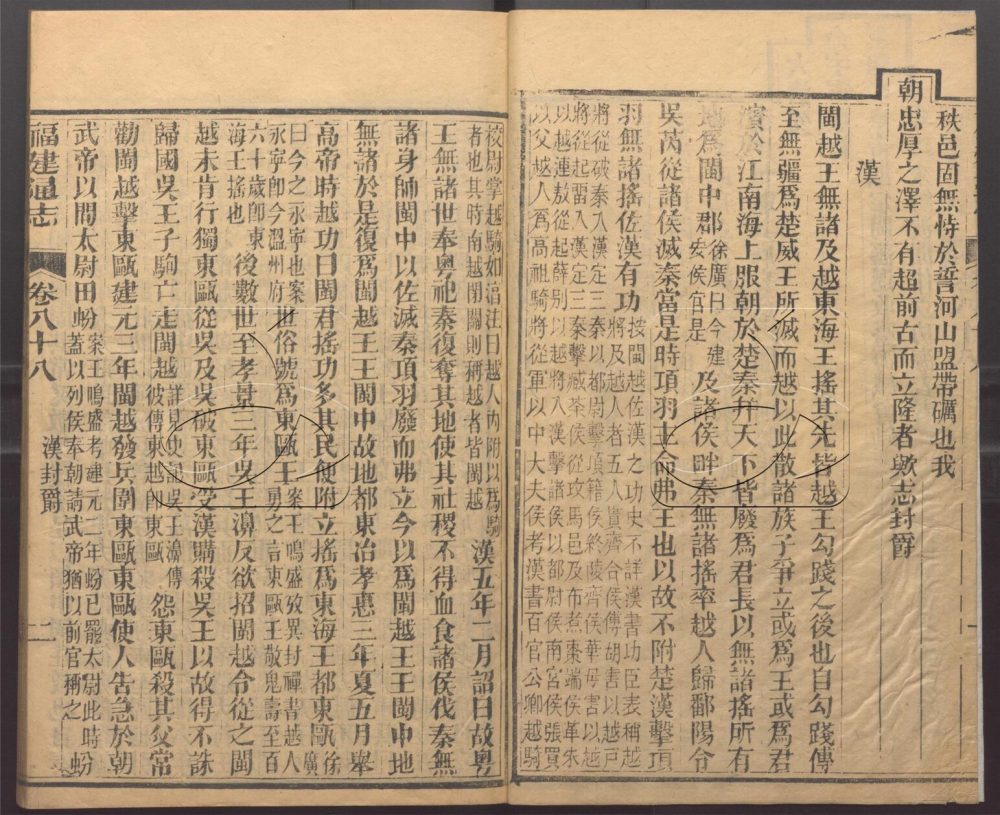 秩邑固無恃於誓河山盟帶礪也我
朝忠厚之澤不有超前古而立隆者歟志封爵
漢
閩越王無諸及越東海王搖其先皆越王勾踐之後也自勾踐傳
至無疆爲楚威王所滅而越以此散諸族子爭立或爲王或爲君
濱於江南海上服朝於楚秦幷天下皆廢爲君長以無諸搖所有
地爲閩中郡徐廣曰今建安侯官是及諸侯畔秦無諸搖率越人歸鄱陽令
吳芮從諸侯滅秦當是時項羽主命弗王也以故不附楚漢擊項
羽無諸搖佐漢有功按閩越佐漢之功史不詳漢書功臣表稱越
將及越人者五人貰齊合侯傅胡害以越戶
將從破秦入漢定三秦以都尉擊項籍侯終陵齊侯華毋害以越
將從起留入漢定三秦擊臧荼侯從攻馬邑及布煮棗端侯革朱
以越連敖從起薛別以越將入漢擊諸侯以都尉侯南宮侯張買
以父越人爲高祖騎將從軍以中大夫侯考漢書百官公卿越騎
校尉掌越騎如淳注曰越人內附以爲騎
者也其時南越閉關則所稱越者皆閩越漢五年二月詔曰故粵
王無諸世奉粵祀秦復奪其地使其社稷不得血食諸侯伐秦無
諸身帥閩中以佐滅秦項羽廢而弗立今以爲閩越王王閩中地
無諸於是復爲閩越王王閩中故地都東冶孝惠三年夏五月舉
高帝時越功曰閩君搖功多其民便附立搖爲東海王都東甌徐廣
曰今之永寧也案
永寧卽今溫州府世俗號爲東甌王案王鳴盛攷異封禪書越人
勇之言東甌王敬鬼壽至百
六十歲卽東
海王搖也後數世至孝景三年吳王濞反欲招閩越令從之閩
越未肯行獨東甌從吳及吳破東甌受漢購殺吳王以故得不誅
歸國吳王子駒亡走閩越詳見史記吳王濞傳
彼傳東越卽東甌怨東甌殺其父常
勸閩越擊東甌建元三年閩越發兵圍東甌東甌使人告急於朝
武帝以問太尉田蚡案王鳴盛考建元二年蚡已罷太尉此時蚡
蓋以列侯奉朝請武帝猶以前官稱之
福建通志
卷八十八
漢封爵
二